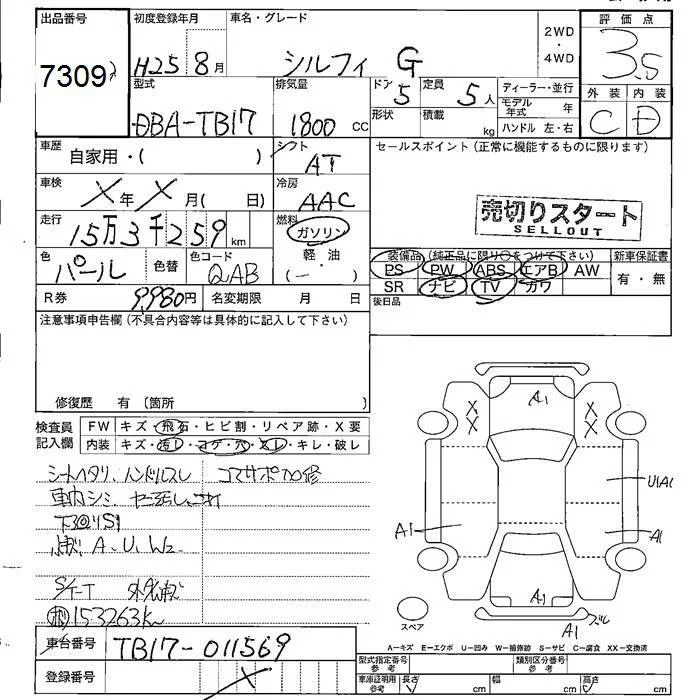 出品番号
7309
初度登録年月
H25 8月
車名・グレード
シルフィ G
2WD
・
4WD
評価点
3.5
外装 内装
C D
型式
DBA-TB17
排気量
1800 cc
ドア
5
定員
5人
形状
積載
kg
ディーラー・並行
モデル年式 年
ハンドル 左・右
車歴
自家用・( )
シフト
AT
車検
X年 X月( 日)
冷房
AAC
走行
15万3千259km
燃料
ガソリン
・
軽・油
(ー )
色
パール
色替
色コード
QAB
R券
9,980円
名変期限 月 日
セールスポイント(正常に機能するものに限ります)
売切りスタート
SELLOUT
装備品(純正品に限り○をつけて下さい)
PS PW ABS エアB AW
SR ナビ TV カワ
新車保証書
有・無
後日品
注意事項申告欄(不具合内容等は具体的に記入して下さい)
修復歴 有 〔箇所 〕
検査員
記入欄
FW キズ・飛石・ヒビ割・リペア跡・X要
内装 キズ・汚レ・コゲ・穴・スレ・キレ・破レ
シートヘタリ、ハンドルスレ
車内シミ
A、U、W2
S/T-T
153263K
車台番号
TB17-011569
登録番号
X
A1
X X
X X
U1A1
A1
A1
A1
A1
スペア
A-キズ E-エクボ U-凹み W-補修跡 S-サビ C-腐食 XX-交換済
型式指定番号
参考
類別区分番号
参考
車庫証明用
参考
長さ cm
幅 cm
高さ cm